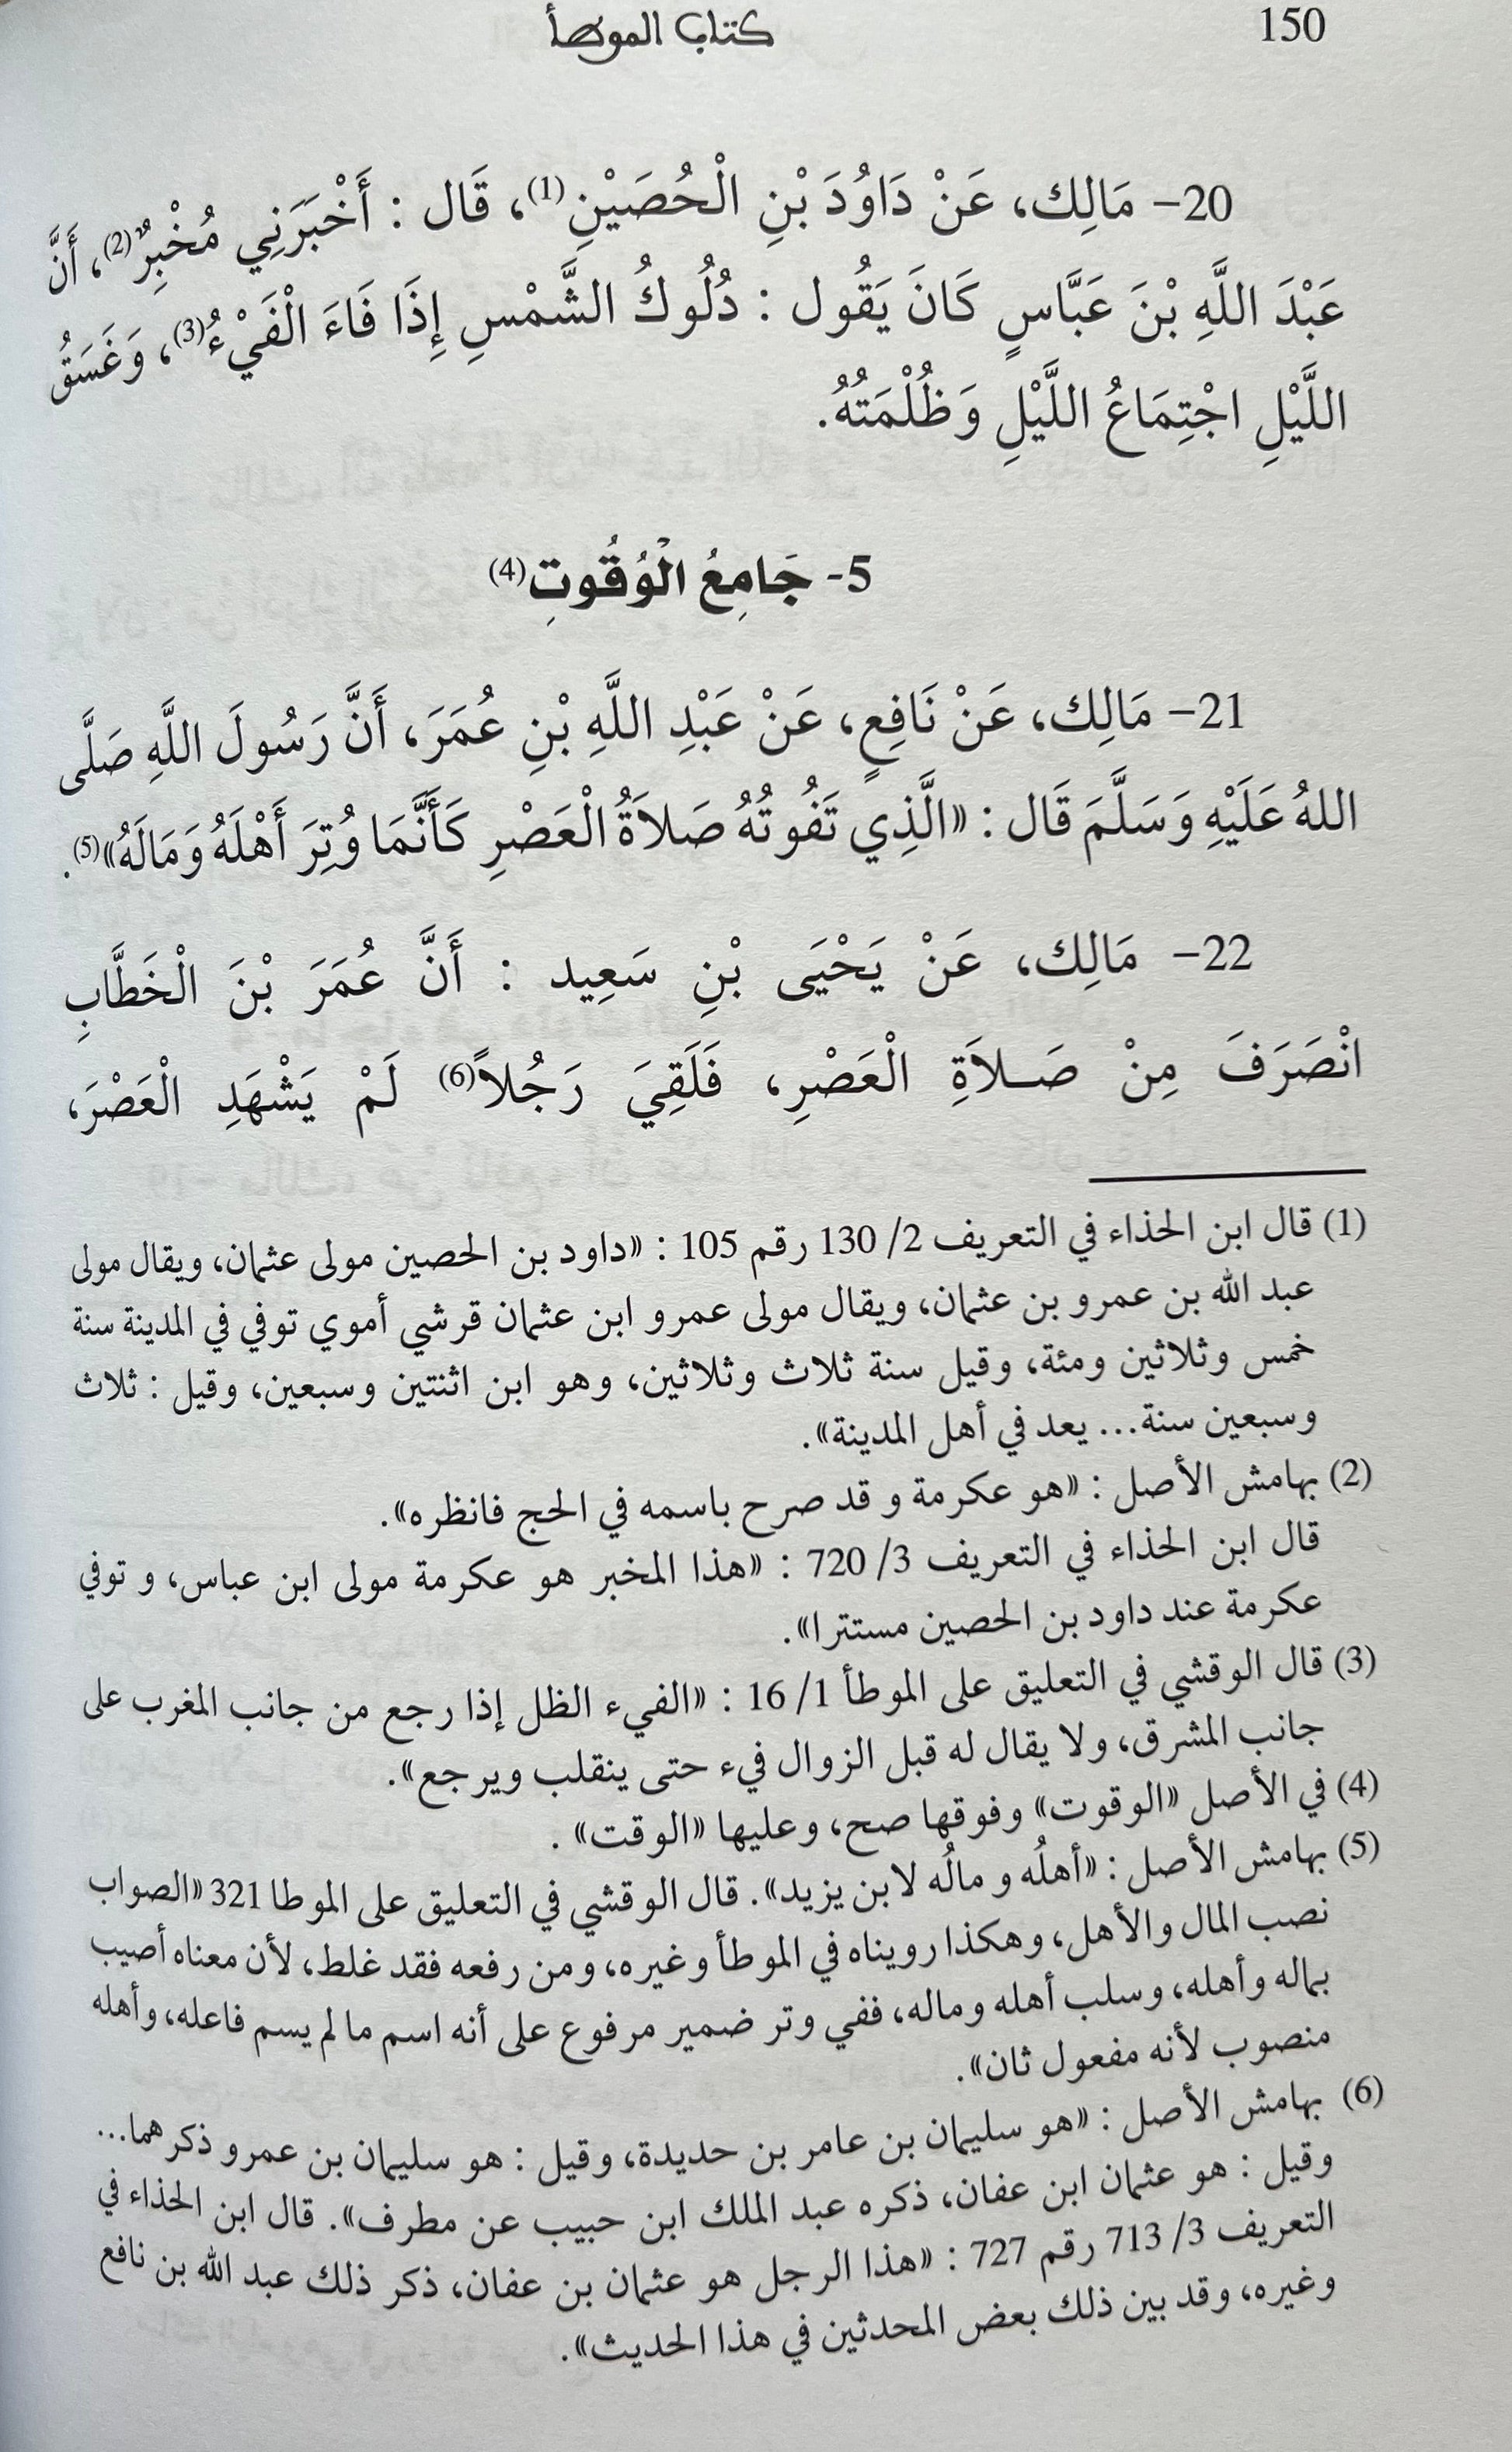 150
كتاب الموطأ
20- مَالِك، عَنْ دَاوُدَ بْنِ الْحُصَيْنِ(1)، قَال : أَخْبَرَنِي مُخْبِرٌ(2)، أَنَّ
عَبْدَ اللَّهِ بْنَ عَبَّاسٍ كَانَ يَقُول : دُلُوكُ الشَّمْسِ إِذَا فَاءَ الْفَيْءُ(3)، وَغَسَقُ
اللَّيْلِ اجْتِمَاعُ اللَّيْلِ وَظُلْمَتُهُ.
5- جَامِعُ الْوُقُوتِ(4)
21- مَالِك، عَنْ نَافِعٍ، عَنْ عَبْدِ اللَّهِ بْنِ عُمَرَ، أَنَّ رَسُولَ اللَّهِ صَلَّى
اللهُ عَلَيْهِ وَسَلَّمَ قَال : «الَّذِي تَفُوتُهُ صَلاَةُ الْعَصْرِ كَأَنَّمَا وُتِرَ أَهْلَهُ وَمَالَهُ»(5).
22- مَالِك، عَنْ يَحْيَى بْنِ سَعِيد : أَنَّ عُمَرَ بْنَ الْخَطَّابِ
انْصَرَفَ مِنْ صَلاَةِ الْعَصْرِ، فَلَقِيَ رَجُلاً(6) لَمْ يَشْهَدِ الْعَصْرَ،
(1) قال ابن الحذاء في التعريف 2/ 130 رقم 105 : «داود بن الحصين مولى عثمان، ويقال مولى
عبد الله بن عمرو بن عثمان، ويقال مولى عمرو ابن عثمان قرشي أموي توفي في المدينة سنة
خمس وثلاثين ومئة، وقيل سنة ثلاث وثلاثين، وهو ابن اثنتين وسبعين، وقيل : ثلاث
وسبعين سنة... يعد في أهل المدينة».
(2) بهامش الأصل : «هو عكرمة و قد صرح باسمه في الحج فانظره».
قال ابن الحذاء في التعريف 3/ 720 : «هذا المخبر هو عكرمة مولى ابن عباس، و توفي
عكرمة عند داود بن الحصين مستترا».
(3) قال الوقشي في التعليق على الموطأ 1/ 16 : «الفيء الظل إذا رجع من جانب المغرب على
جانب المشرق، ولا يقال له قبل الزوال فيء حتى ينقلب ويرجع».
(4) في الأصل «الوقوت» وفوقها صح، وعليها «الوقت» .
(5) بهامش الأصل : «أهلُه و مالُه لابن يزيد». قال الوقشي في التعليق على الموطا 321 «الصواب
نصب المال والأهل، وهكذا رويناه في الموطأ وغيره، ومن رفعه فقد غلط، لأن معناه أصيب
بماله وأهله، وسلب أهله وماله، ففي وتر ضمير مرفوع على أنه اسم ما لم يسم فاعله، وأهله
منصوب لأنه مفعول ثان».
(6) بهامش الأصل : «هو سليمان بن عامر بن حديدة، وقيل : هو سليمان بن عمرو ذكر هما...
وقيل : هو عثمان ابن عفان، ذكره عبد الملك ابن حبيب عن مطرف». قال ابن الحذاء في
التعريف 3/ 713 رقم 727 : «هذا الرجل هو عثمان بن عفان، ذكر ذلك عبد الله بن نافع
وغيره، وقد بين ذلك بعض المحدثين في هذا الحديث».